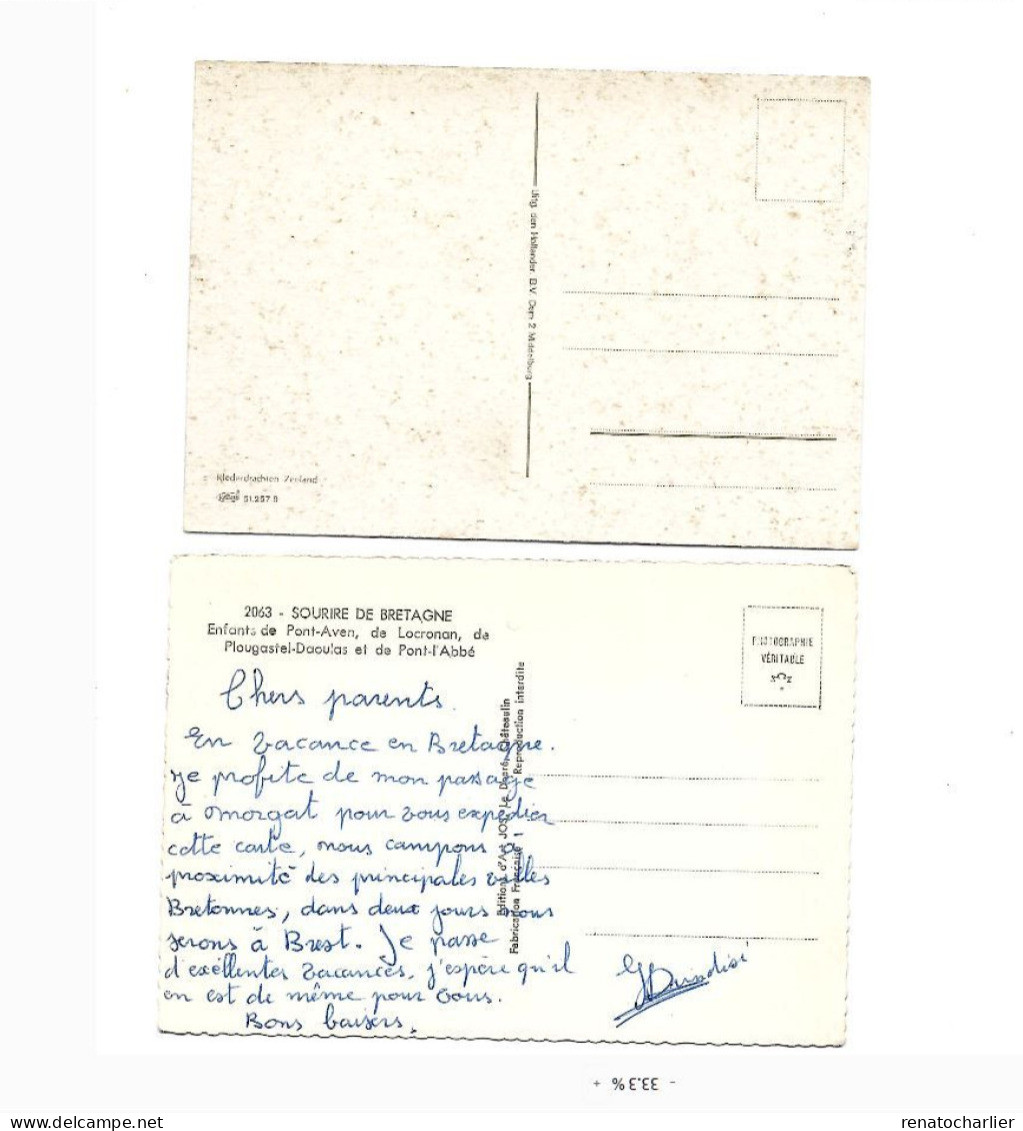 Uitg. den Hollander B.V. Dam 2 Middelburg
Klederdrachten Zeeland
51.257.8
2063 - SOURIRE DE BRETAGNE
Enfants de Pont-Aven, de Locronan, de
Plougastel-Daoulas et de Pont-l'Abbé
PHOTOGRAPHIE
VÉRITABLE
Editions d'Art JOS Le Doaré, Châteaulin
Fabrication Française Reproduction interdite
Chers parents.
En vacance en Bretagne.
Je profite de mon passage
à morgat pour vous expédier
cette carte, nous campons à
proximité des principales villes
Bretonnes, dans deux jours nous
serons à Brest. Je passe
d'exéllentes vacances, j'espère qu'il
en est de même pour vous.
Bons baisers.
- 33.3% +
renatocharlier